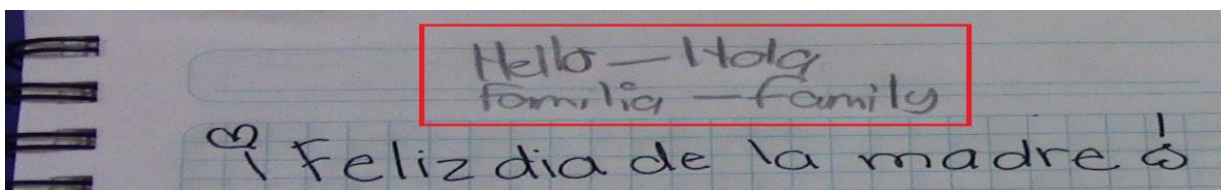 Hello — Hola
familia — family
¡Feliz dia de la madre!